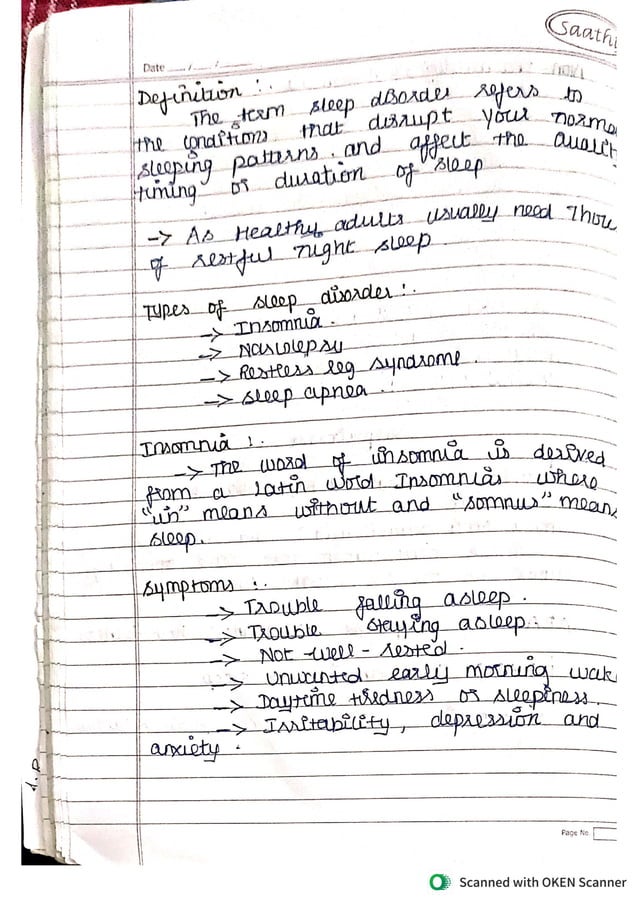 Saathi
Date
Definition :.
The term sleep disorder refers to
the conditions that disrupt your norma
sleeping patterns. and affect the qualit
timing or duration of sleep
-> As Healthy adults usually need 7hou
of restful night sleep.
Types of sleep disorder :.
-> Insomnia.
-> Narcolepsy
-> Restless leg syndrome.
-> sleep apnea.
Insomnia :.
-> The word of insomnia is derived
from a latin word. Insomnias where
"in" means without and "somnus" mean
sleep.
Symptoms :.
-> Trouble falling asleep.
-> Trouble staying asleep.
-> Not -well - rested.
-> Unwanted early morning wak
-> Daytime tiredness or sleepiness.
-> Irritability, depression and
anxiety.
Page No.
Scanned with OKEN Scanner